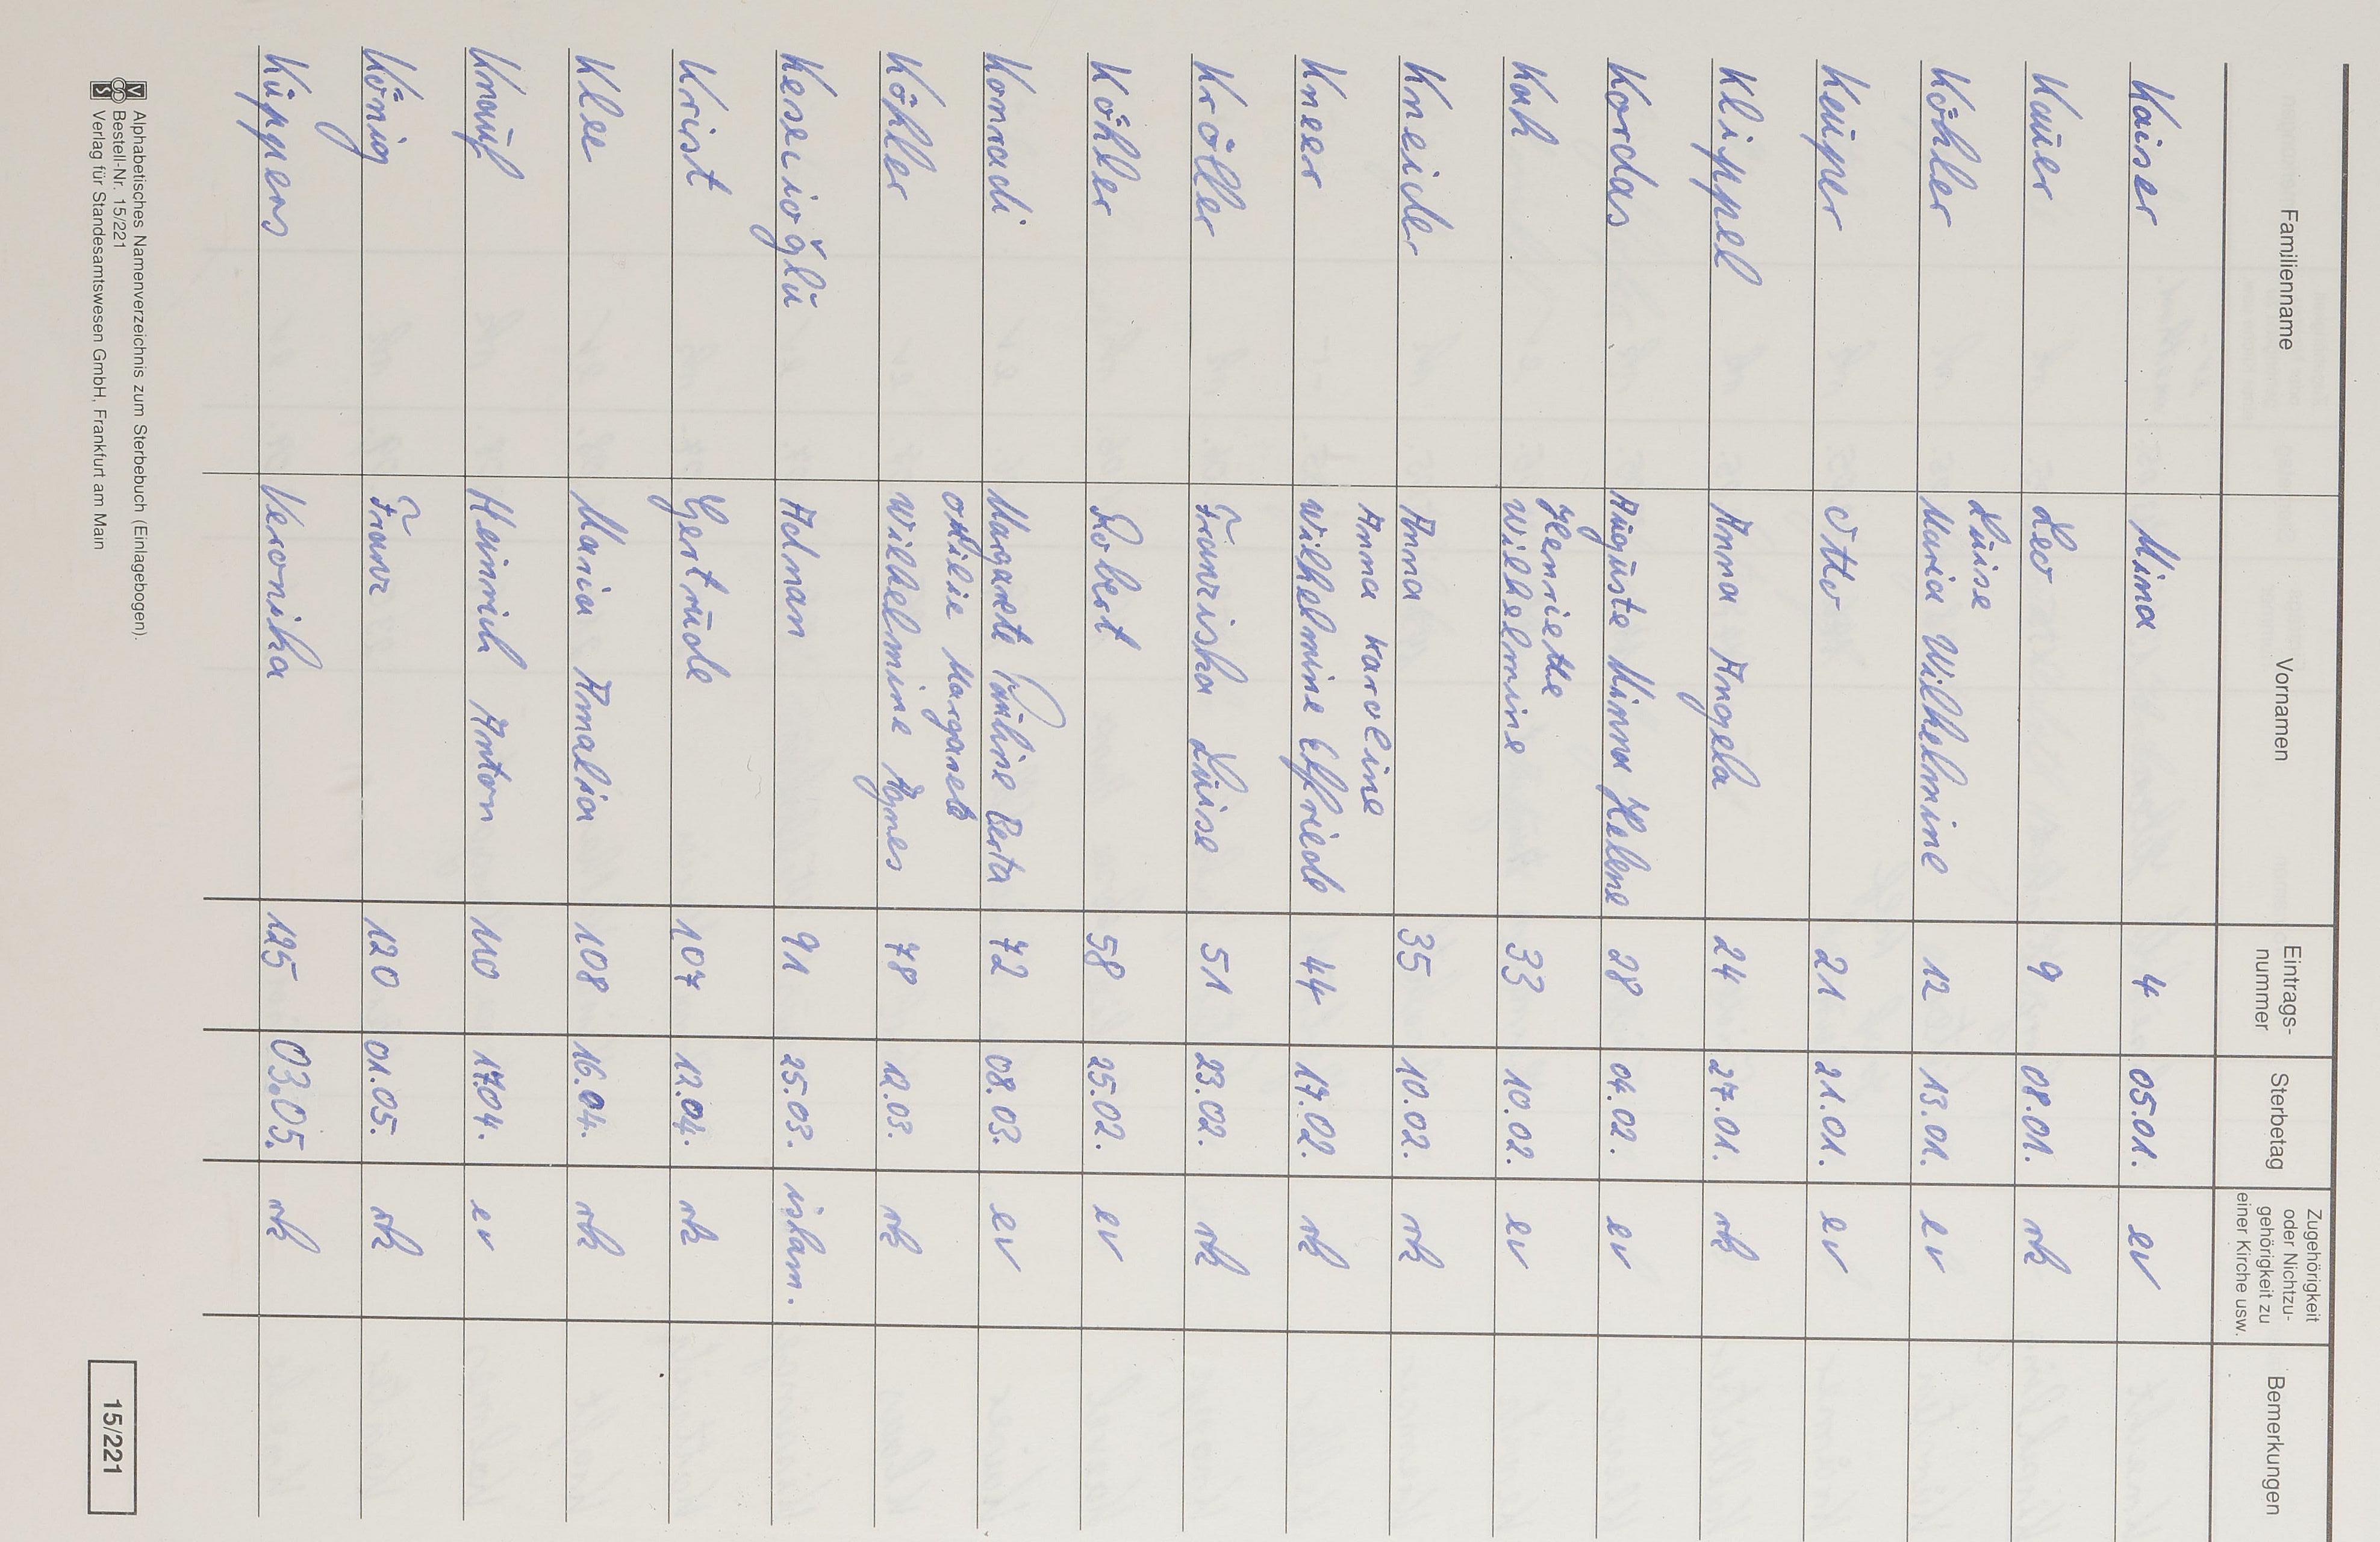 Familienname Vornamen Eintrags-nummer Sterbetag Zugehörigkeit oder Nichtzu-gehörigkeit zu einer Kirche usw. Bemerkungen
Kaiser Mina 4 05.01. ev
Kauer Leo 9 08.01. rk
Luise
Köhler Maria Wilhelmine 12 13.01. ev
Keuper Otto 21 21.01. ev
Klippel Anna Angela 24 27.01. rk
Kordas Auguste Minna Helene 28 04.02. ev
Henriette
Kuh Wilhelmine 33 10.02. ev
Kneider Anna 35 10.02. rk
Anna Karoline
Kneer Wilhelmine Elfriede 44 17.02. rk
Kröller Franziska Luise 51 23.02. rk
Köhler Robert 58 25.02. ev
Konradi Margarete Pauline Berta 72 08.03. ev
Ottilie Margarete
Köhler Wilhelmine Agnes 78 12.03. rk
Kescioğlu Adnan 91 25.03. islam.
Krist Gertrude 107 12.04. rk
Klee Maria Amalia 108 16.04. rk
Knauf Heinrich Anton 110 17.04. ev
König Franz 120 01.05. rk
Küppers Veronika 125 03.05. rk
Alphabetisches Namenverzeichnis zum Sterbebuch (Einlagebogen).
Bestell-Nr. 15/221
Verlag für Standesamtswesen GmbH, Frankfurt am Main
15/221